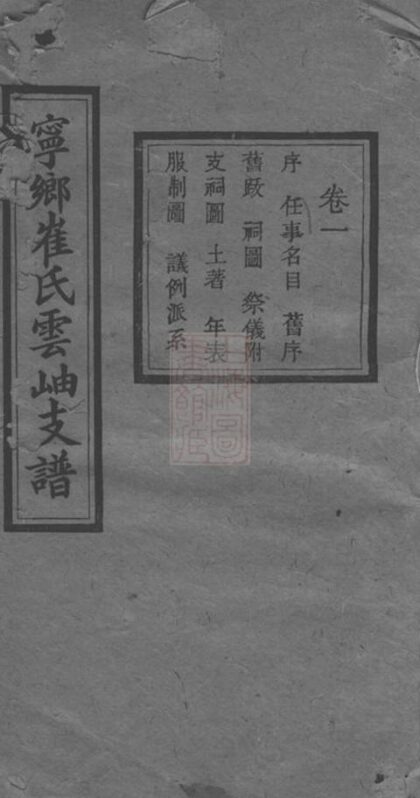 卷一
序 任事名目 舊序
舊跋 祠圖 祭儀附
支祠圖 土著 年表
服制圖 議例派系
寧鄉崔氏雲岫支譜